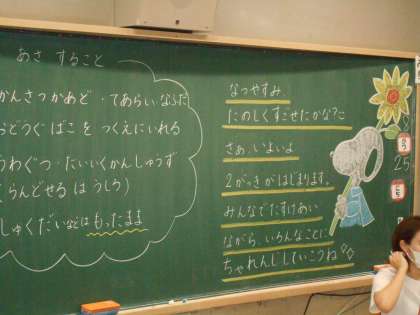 あさ すること
かんさつかあど・てあらい・なふだ
おどうぐばこを つくえにいれる
うわぐつ・たいいくかんしゅうず
らんどせるはうしろ
しゅくだいなどはもったまま
なつやすみ、
たのしくすごせたかな?
さあ、いよいよ
2がっきがはじまります。
みんなでたすけあい
ながら、いろんなことに
ちゃれんじしていこうね
25